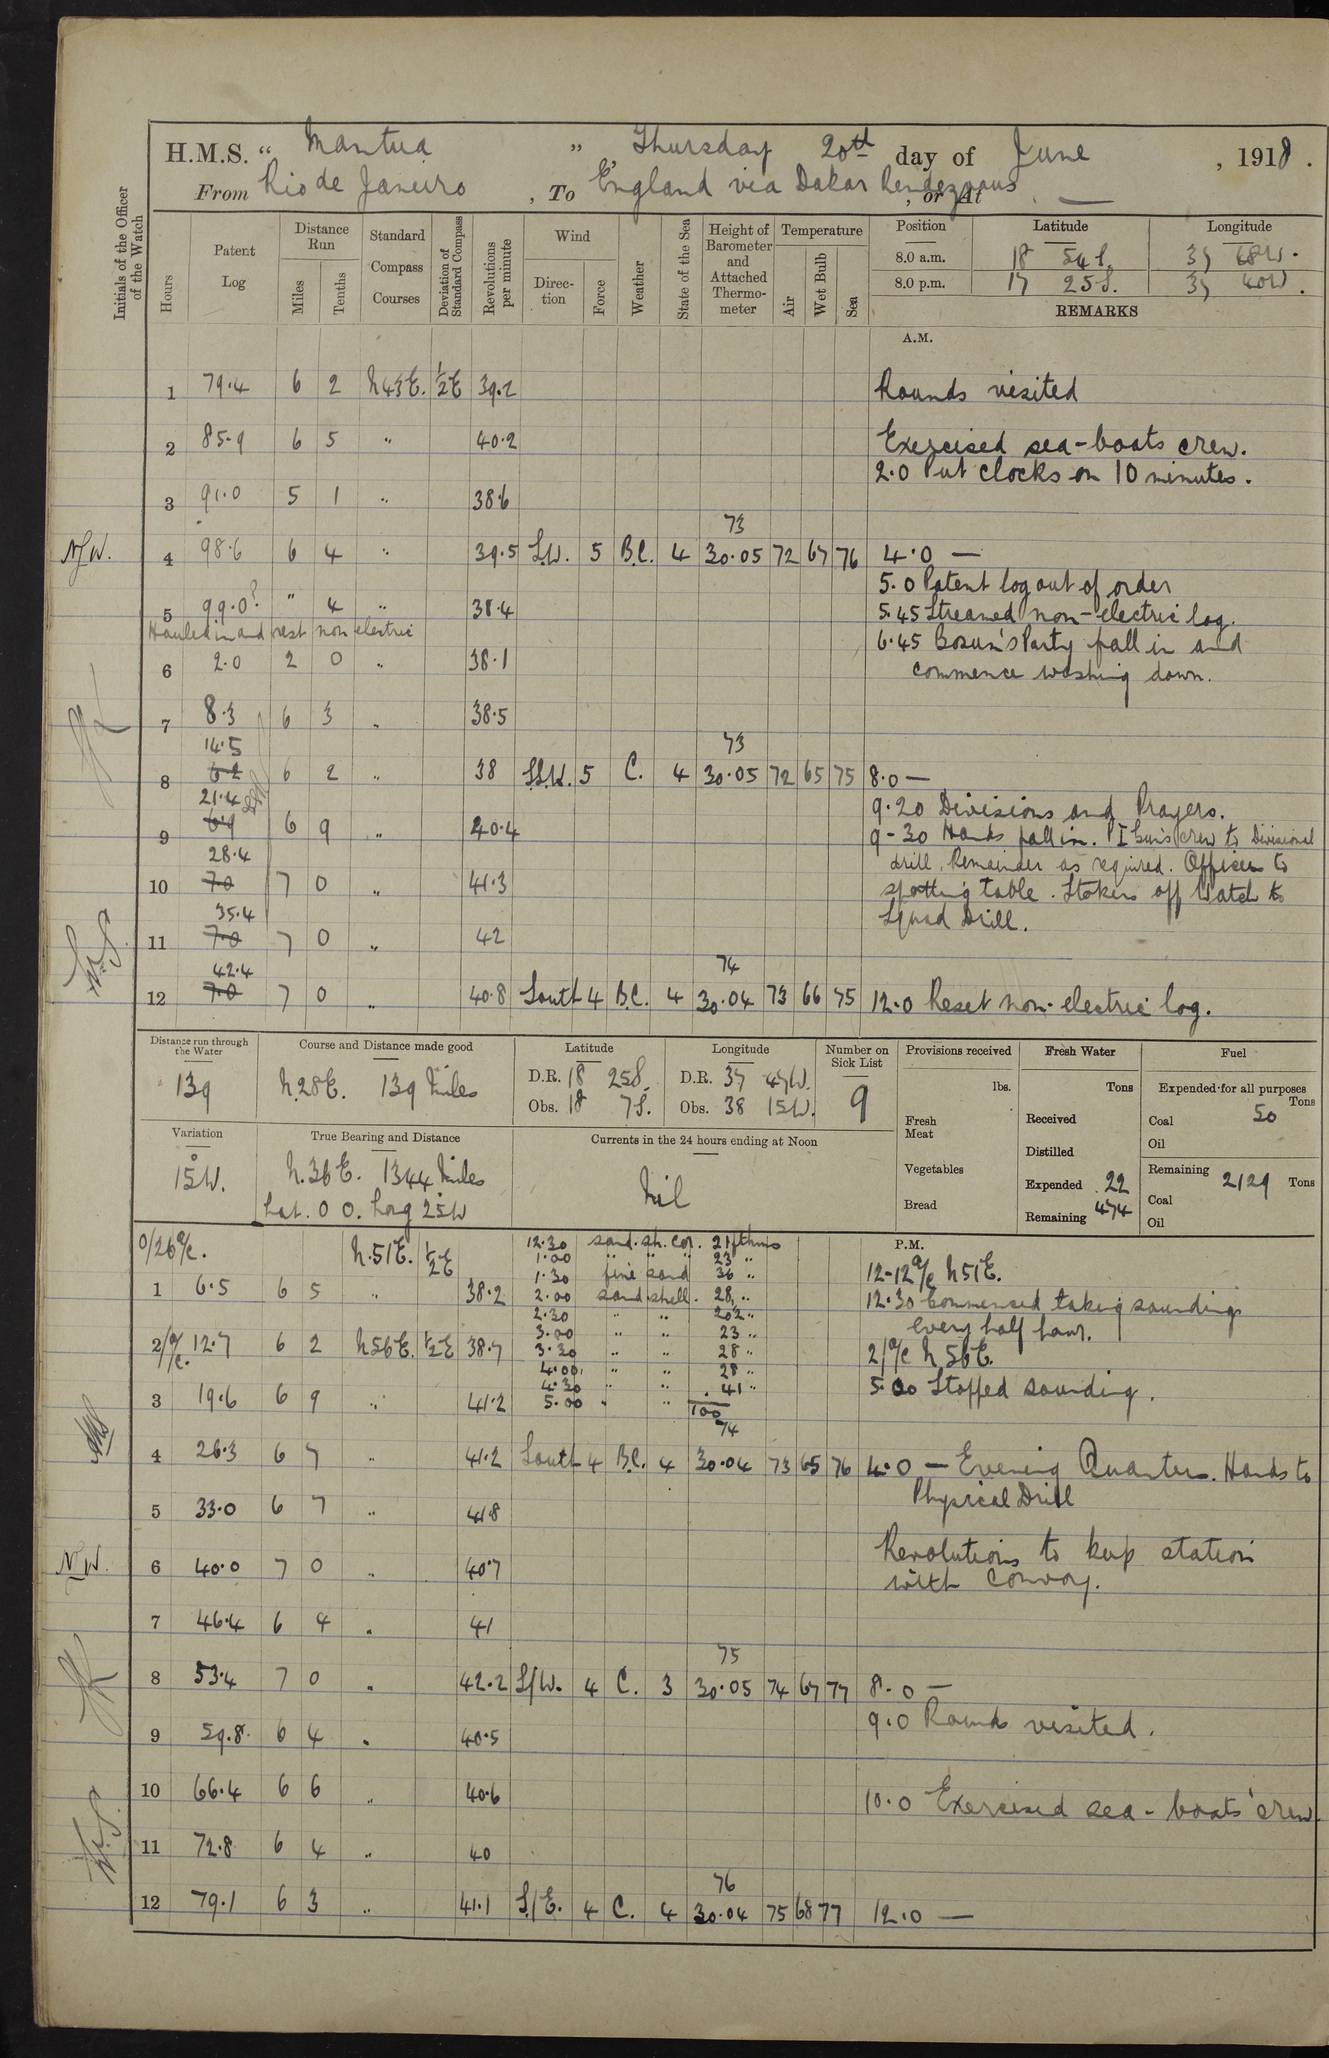 H.M.S. “ Mantua ”, Thursday 20th day of June, 1918.
From Rio de Janeiro, To England via Dakar Rendezvous, or At —
Initials of the Officer of the Watch
Hours
Patent Log
Distance Run
Miles
Tenths
Standard Compass Courses
Deviation of Standard Compass
Revolutions per minute
Wind
Direction
Force
Weather
State of the Sea
Height of Barometer and Attached Thermometer
Temperature
Air
Wet Bulb
Sea
Position Latitude Longitude
8.0 a.m. 18 54 S.
8.0 p.m. 17 25 S.
REMARKS
A.M.
1 79.4 6 2 N43E. ½E 39.2 Rounds visited
2 85.9 6 5 " 40.2 Exercised sea-boats crew.
2.0 Put clocks on 10 minutes.
3 91.0 5 1 " 38.6
73
N.W. 4 98.6 6 4 " 39.5 S.W. 5 B.C. 4 30.05 72 67 76 4.0 —
5.0 Patent log out of order
5 99.0? " 4 " 38.4 5.45 Streamed non-electric log.
Hauled in and rest non electric
6.45 Bosun's Party fall in and
6 2.0 2 0 " 38.1 commence washing down.
7 8.3 6 3 " 38.5
14.5 73
8 6.2 6 2 " 38 S.S.W. 5 C. 4 30.05 72 65 75 8.0 —
21.4 9.20 Divisions and Prayers.
9 6.9 6 9 " 40.4 9-30 Hands fall in. PI Guns crew to Divisional
28.4 drill. Remainder as required. Officers to
10 7.0 7 0 " 41.3 spotting table. Stokers off Watch to
35.4 Squad Drill.
11 7.0 7 0 " 42
42.4 74
12 7.0 7 0 " 40.8 South 4 B.C. 4 30.04 73 66 75 12.0 Reset non-electric log.
Distance run through the Water
139
Course and Distance made good
N.28E. 139 Miles
Latitude
D.R. 18 25S.
Obs. 18 7S.
Longitude
D.R. 37 47W.
Obs. 38 15W.
Number on Sick List
9
Provisions received
lbs.
Fresh Meat
Vegetables
Bread
Fresh Water
Tons
Received
Distilled
Expended 22
Remaining 474
Fuel
Expended for all purposes
Tons
Coal 50
Oil
Remaining 2129 Tons
Coal
Oil
Variation
15°W.
True Bearing and Distance
N.36E. 1344 Miles
Lat. 0 0. Long 25°W
Currents in the 24 hours ending at Noon
Nil
P.M.
0/26 a/c. N.51E. ½E 12.30 sand. sh. cor. 21 fthms
1.00 " " " 23 "
12-12 a/c N51E.
1.30 fine sand 36 "
1 6.5 6 5 " 38.2 2.00 sand shell. 28 " 12.30 Commenced taking soundings
2.30 " " 202 " every half hour.
3.00 " " 23 "
2/a/c. 12.7 6 2 N56E. ½E 38.7 3.30 " " 28 " 2/ a/c N 56E.
4.00 " " 28 "
4.30 " " 41 "
3 19.6 6 9 " 41.2 5.00 " " 100 5.00 Stopped sounding.
74
4 26.3 6 7 " 41.2 South 4 B.C. 4 30.04 73 65 76 4.0 — Evening Quarters. Hands to
Physical Drill
5 33.0 6 7 " 41.8
Revolutions to keep station
N.W. 6 40.0 7 0 " 40.7 with Convoy.
7 46.4 6 4 " 41
75
8 53.4 7 0 " 42.2 S/W. 4 C. 3 30.05 74 67 77 8.0 —
9.0 Rounds visited.
9 59.8 6 4 " 40.5
10 66.4 6 6 " 40.6 10.0 Exercised sea-boats' crew.
11 72.8 6 4 " 40
76
12 79.1 6 3 " 41.1 S/E. 4 C. 4 30.04 75 68 77 12.0 —